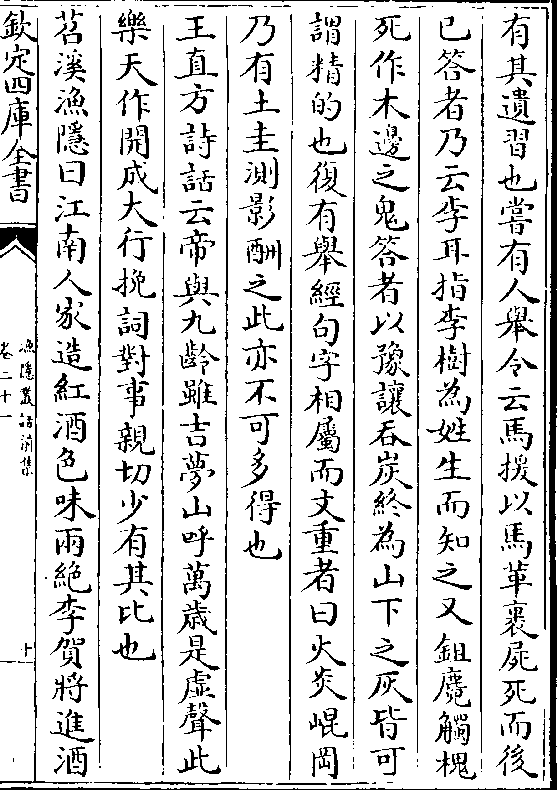 有其遺習也嘗有人舉令云馬援以馬革裹屍死而後
已答者乃云李耳指李樹為姓生而知之又鉏麑觸槐
死作木邊之鬼答者以豫讓吞炭終為山下之灰皆可
謂精的也復有舉經句字相屬而文重者曰火炎崐岡
乃有土圭測影酬之此亦不可多得也
王直方詩話云帝與九齡雖吉夢山呼萬歲是虛聲此
樂天作開成大行挽詞對事親切少有其比也
苕溪漁隱曰江南人家造紅酒色味兩絶李賀將進酒
欽定四庫全書
漁隱叢話前集
卷二十一
十